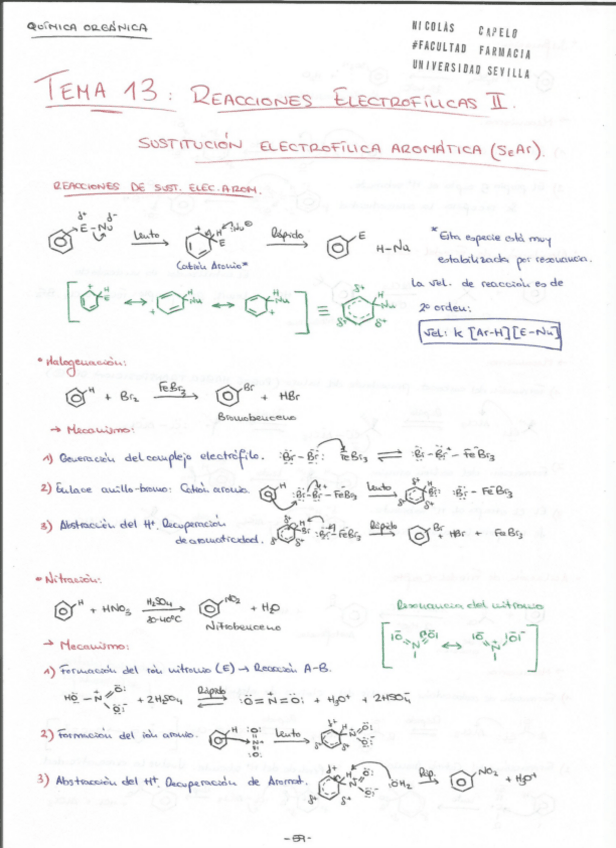 QUÍMICA ORGÁNICA
NICOLÁS CAPELO
#FACULTAD FARMACIA
UNIVERSIDAD SEVILLA
TEMA 13: REACCIONES ELECTROFÍLICAS II.
SUSTITUCIÓN ELECTROFÍLICA AROMÁTICA (SEAr).
REACCIONES DE SUST. ELEC. AROM.
δ+ δ-
E-Nu Lento + H :Nu⊖ E Rápido E H-Nu
Catión Aronio*
* Esta especie está muy
estabilizada por resonancia.
La vel. de reacción es de
2º orden:
vel: k [Ar-H][E-Nu]
+ H E ↔ + H Nu ↔ + H Nu ≡ δ+ δ+ δ+ H Nu
• Halogenación:
H + Br₂ FeBr₃ → Br + HBr
Bromobenceno
→ Mecanismo:
1) Generación del complejo electrófilo. :Br-Br: FeBr₃ ⇌ :Br-Br⁺-FeBr₃⁻
2) Enlace anillo-bromo: Catión aronio. H :Br-Br⁺-FeBr₃⁻ Lento → H Br: :Br-FeBr₃⁻
3) Abstracción del H⁺. Recuperación
de aromaticidad. H Br :Br-FeBr₃⁻ Rápido → Br + HBr + FeBr₃
• Nitración:
H + HNO₃ H₂SO₄ 30-40ºC → NO₂ + H₂O
Nitrobenceno
Resonancia del nitronio
→ Mecanismo:
1) Formación del ión nitronio (E) → Reacción A-B.
HO-N⁺ O: O:⁻ + 2H₂SO₄ Rápido ⇌ :O=N⁺=O: + H₃O⁺ + 2HSO₄⁻
2) Formación del ión aronio. H :O: N⁺ :O: Lento → H N⁺ O: O:⁻
3) Abstracción del H⁺. Recuperación de Aromat. H N⁺ O: O:⁻ :OH₂ Ráp. → NO₂ + H₃O⁺
-59-